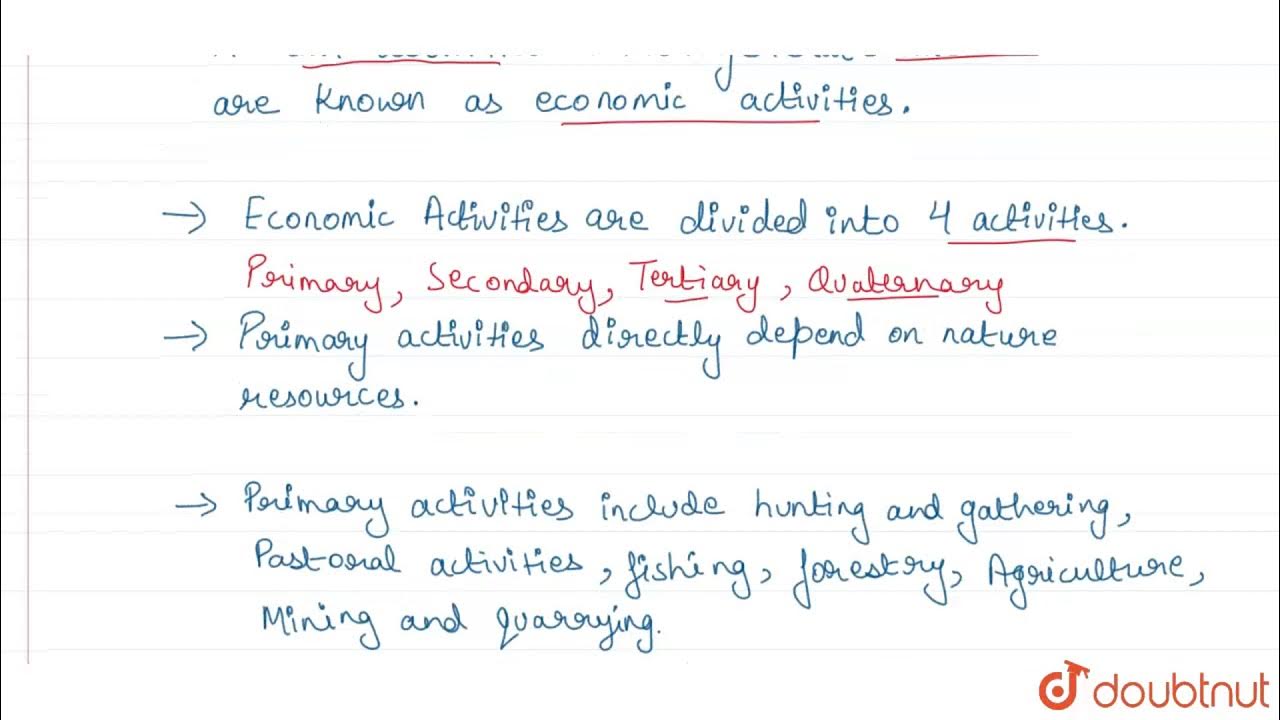 are known as economic activities.
→ Economic Activities are divided into 4 activities.
Primary, Secondary, Tertiary, Quaternary
→ Primary activities directly depend on nature
resources.
→ Primary activities include hunting and gathering,
Pastoral activities, fishing, forestry, Agriculture,
Mining and quarrying.
doubtnut